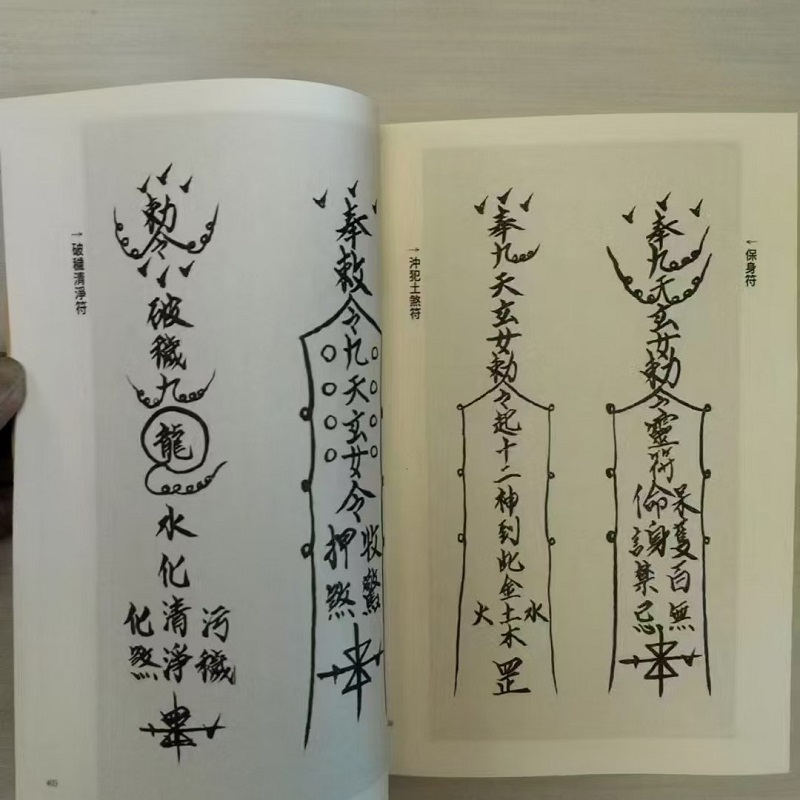 保身符
奉九天玄女勅令靈符
百無
禁忌
沖犯土煞符
奉九天玄女勅令起十二神到此金土木罡
水
火
奉敕令九天玄女令
收驚
押煞
勅令破穢九龍水化清淨
污穢
化煞
破穢清淨符